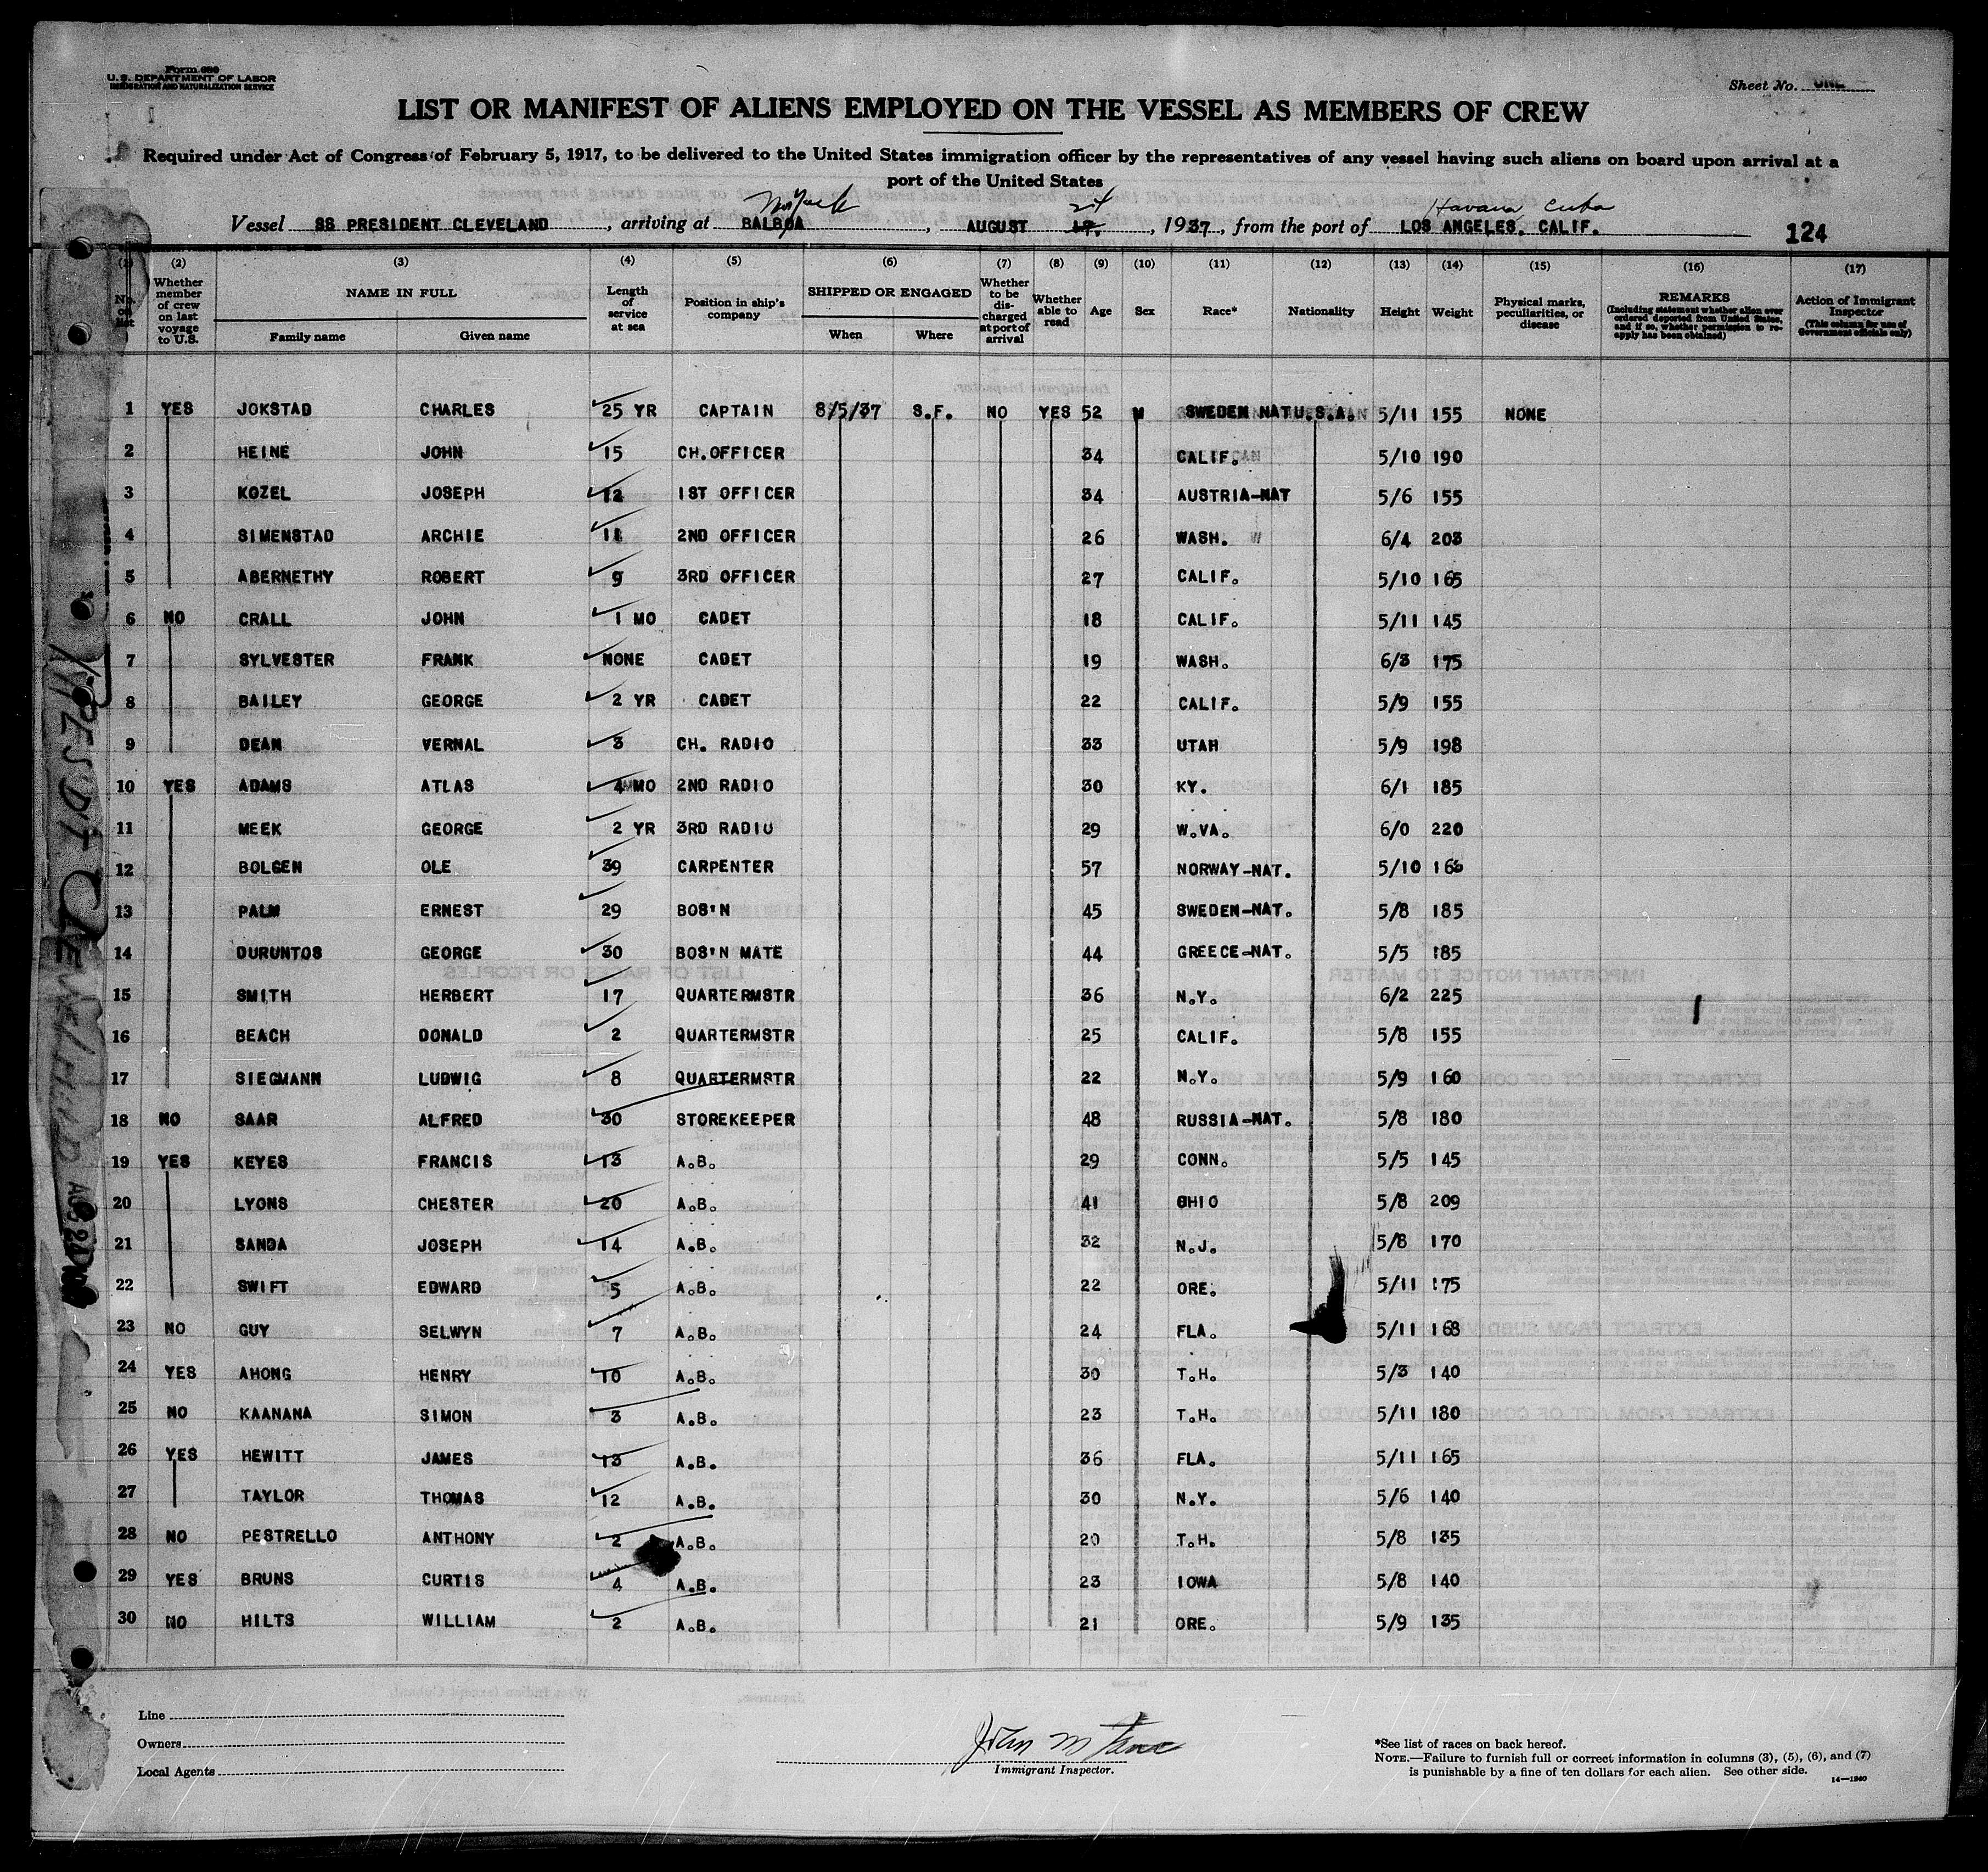 Form 680
U.S. DEPARTMENT OF LABOR
IMMIGRATION AND NATURALIZATION SERVICE
Sheet No. ONE
LIST OR MANIFEST OF ALIENS EMPLOYED ON THE VESSEL AS MEMBERS OF CREW
Required under Act of Congress of February 5, 1917, to be delivered to the United States immigration officer by the representatives of any vessel having such aliens on board upon arrival at a
port of the United States
New York 24 Havana Cuba
Vessel SS PRESIDENT CLEVELAND, arriving at BALBOA, AUGUST 17, 1937, from the port of LOS ANGELES, CALIF. 124
(1) (2) (3) (4) (5) (6) (7) (8) (9) (10) (11) (12) (13) (14) (15) (16) (17)
No. on list
Whether member of crew on last voyage to U.S.
NAME IN FULL
Family name Given name
Length of service at sea
Position in ship's company
SHIPPED OR ENGAGED
When Where
Whether to be discharged at port of arrival
Whether able to read
Age
Sex
Race*
Nationality
Height
Weight
Physical marks, peculiarities, or disease
REMARKS
(Including statement whether alien ever ordered deported from United States, and if so, whether permission to re-apply has been obtained)
Action of Immigrant Inspector
(This column for use of Government officials only)
1 YES JOKSTAD CHARLES 25 YR CAPTAIN 8/5/37 S.F. NO YES 52 M SWEDEN NAT U.S.A. 5/11 155 NONE
2 HEINE JOHN 15 CH.OFFICER 34 CALIF. 5/10 190
3 KOZEL JOSEPH 12 1ST OFFICER 34 AUSTRIA-NAT 5/6 155
4 SIMENSTAD ARCHIE 11 2ND OFFICER 26 WASH. 6/4 203
5 ABERNETHY ROBERT 9 3RD OFFICER 27 CALIF. 5/10 165
6 NO CRALL JOHN 1 MO CADET 18 CALIF. 5/11 145
7 SYLVESTER FRANK NONE CADET 19 WASH. 6/3 175
8 BAILEY GEORGE 2 YR CADET 22 CALIF. 5/9 155
9 DEAN VERNAL 3 CH. RADIO 33 UTAH 5/9 198
10 YES ADAMS ATLAS 4 MO 2ND RADIO 30 KY. 6/1 185
11 MEEK GEORGE 2 YR 3RD RADIO 29 W.VA. 6/0 220
12 BOLGEN OLE 39 CARPENTER 57 NORWAY-NAT. 5/10 166
13 PALM ERNEST 29 BOS'N 45 SWEDEN-NAT. 5/8 185
14 DURUNTOS GEORGE 30 BOS'N MATE 44 GREECE-NAT. 5/5 185
15 SMITH HERBERT 17 QUARTERMSTR 36 N.Y. 6/2 225
16 BEACH DONALD 2 QUARTERMSTR 25 CALIF. 5/8 155
17 SIEGMANN LUDWIG 8 QUARTERMSTR 22 N.Y. 5/9 160
18 NO SAAR ALFRED 30 STOREKEEPER 48 RUSSIA-NAT. 5/8 180
19 YES KEYES FRANCIS 13 A.B. 29 CONN. 5/5 145
20 LYONS CHESTER 20 A.B. 41 OHIO 5/8 209
21 SANDA JOSEPH 14 A.B. 32 N.J. 5/8 170
22 SWIFT EDWARD 5 A.B. 22 ORE. 5/11 175
23 NO GUY SELWYN 7 A.B. 24 FLA. 5/11 168
24 YES AHONG HENRY 10 A.B. 30 T.H. 5/3 140
25 NO KAANANA SIMON 3 A.B. 23 T.H. 5/11 180
26 YES HEWITT JAMES 13 A.B. 36 FLA. 5/11 165
27 TAYLOR THOMAS 12 A.B. 30 N.Y. 5/6 140
28 NO PESTRELLO ANTHONY 2 A.B. 20 T.H. 5/8 135
29 YES BRUNS CURTIS 4 A.B. 23 IOWA 5/8 140
30 NO HILTS WILLIAM 2 A.B. 21 ORE. 5/9 135
Line
Owners
Local Agents
Immigrant Inspector.
*See list of races on back hereof.
NOTE.—Failure to furnish full or correct information in columns (3), (5), (6), and (7)
is punishable by a fine of ten dollars for each alien. See other side.
14—1240
PRESDT CLEVELAND AUG 24